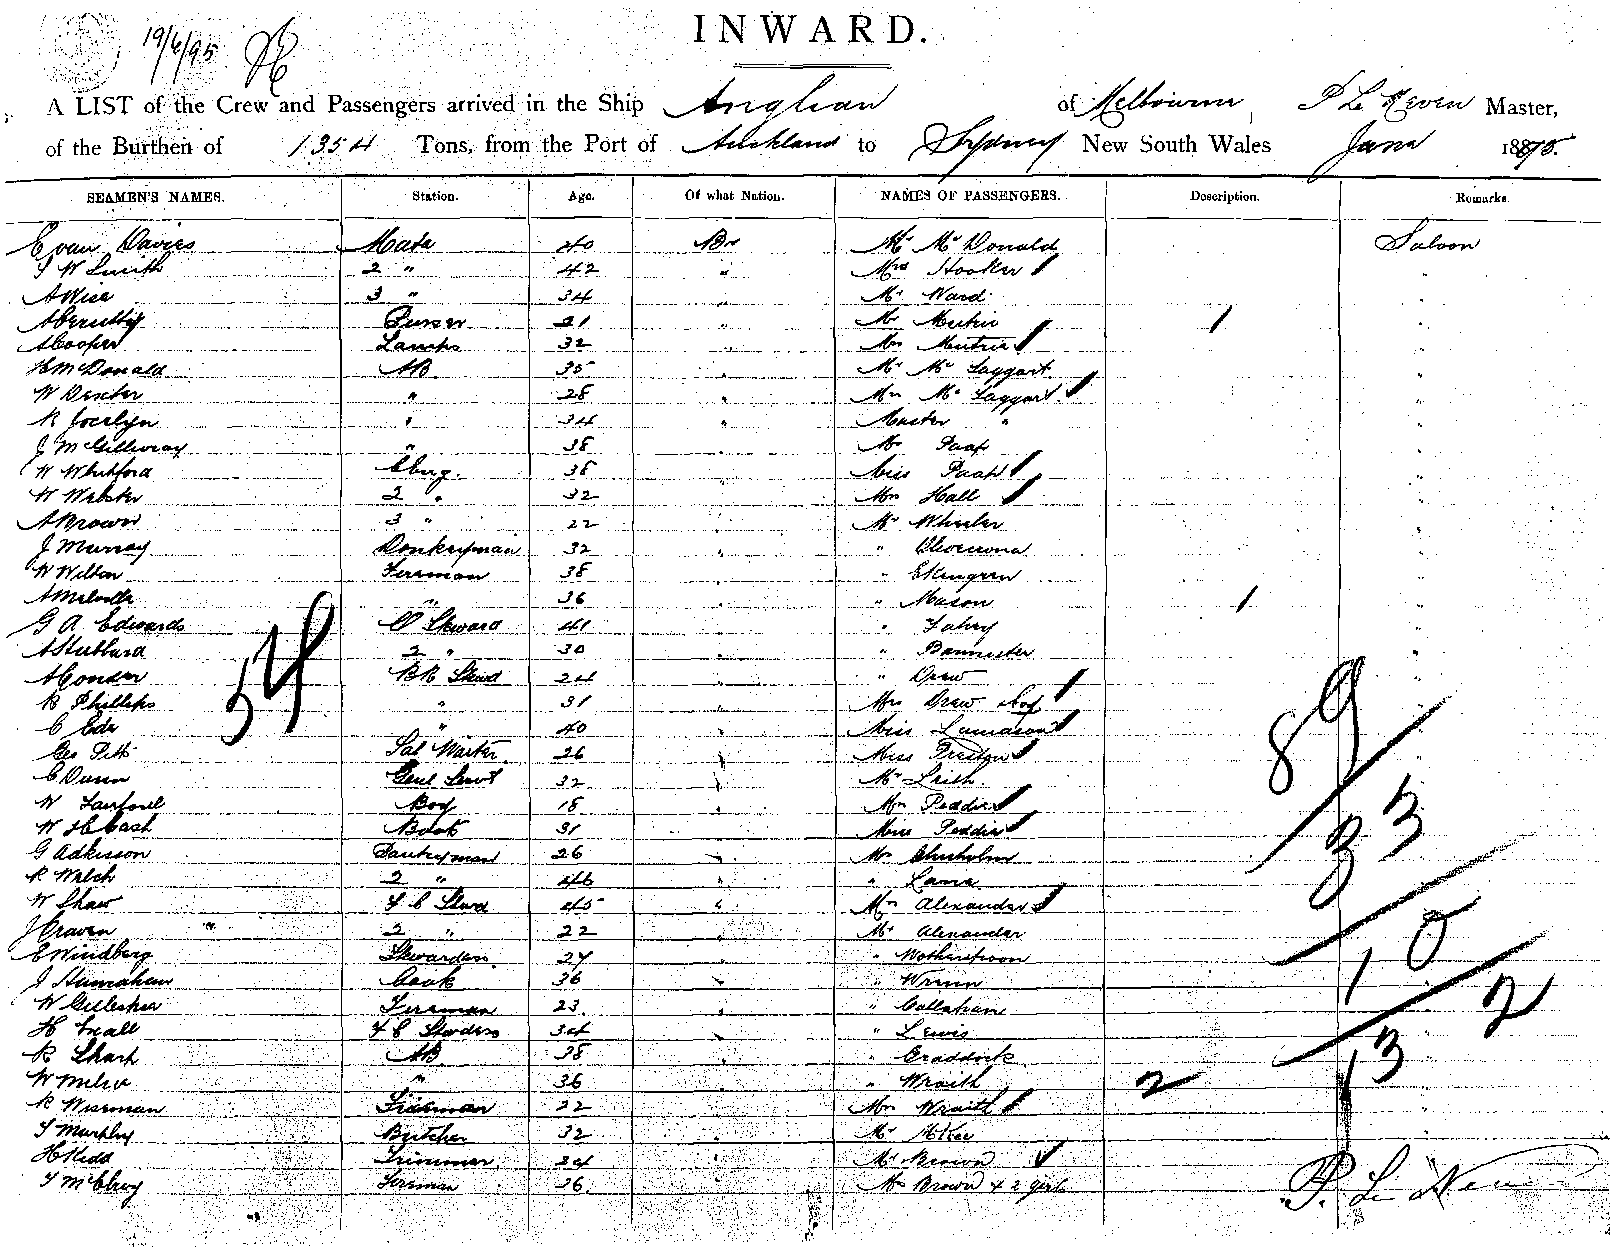 INWARD.
19/6/95
A LIST of the Crew and Passengers arrived in the Ship Anglian of Melbourne, P Le Neven Master,
of the Burthen of 1354 Tons, from the Port of Auckland to Sydney New South Wales June 1895.
SEAMEN'S NAMES. Station. Age. Of what Nation. NAMES OF PASSENGERS. Description. Remarks.
Evan Davies Mate 40 Br Mr McDonald Saloon
T W Smith 2 " 42 " Mrs Hooker "
A Wise 3 " 34 " Mr Ward "
Purser 21 " Mr 1 "
A Cooper Lamps 32 " Mrs "
H McDonald AB 35 " Mr McTaggart "
W Dexter " 28 " Mrs McTaggart "
R Jocelyn " 34 " Master " "
J McGillivray " 38 Mr Paap
W Whitford Eng. 38 Miss Paap
W Webster 2 " 32 Mrs Hall
A Brown 3 " 22 Mr Wheeler
J Murray Donkeyman 32 "
W Wilton Fireman 38 " Ekengren
A Melville " 36 " Mason 1
G A Edwards Steward 41 " Fahey
A Stubbard 2 " 30 " Bannister
A Conder BR Stewd 24 " Drew
R Phillips " 31 Mrs Drew
C Ede " 40 Miss
Geo Pitt Sal Waiter 26 Miss Preston
C Dunn Genl Servt 32 Mr Leith
W Boy 18 Mrs Peddie
W H Cash 31 Miss Peddie
G Adkisson Pantryman 26 Mr Chisholm
R Welch 2 " 46 " Lane
W Shaw F C Stewd 45 " Mrs Alexander
J Craven 2 " 22 Mr Alexander
E Windberg Stewardess 27 " Wotherspoon
J Cook 36 "
W Fireman 23 " Callahan
H Snall F C Stewardess 34 " Lewis
R Sharp AB 38 " Craddock
W Milne " 36 " Wraith 2
R Wiseman Fireman 22 Mrs Wraith
T Murphy Butcher 32 Mr McKee
H Kidd Trimmer 24 Mr Brown
T McElroy Fireman 26 Mrs Brown & 2 girls
54
89
33
10
2
13
P. Le Neven